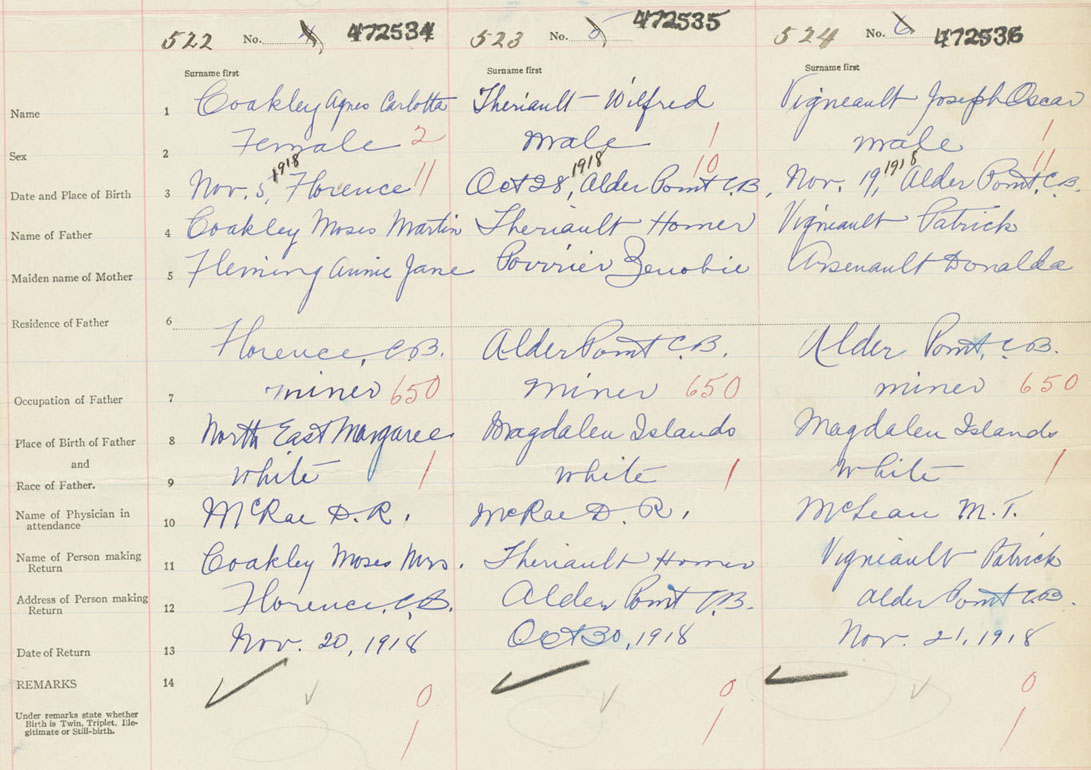 522 No. 4 472534 523 No. 5 472535 524 No. 6 472536
Surname first Surname first Surname first
Name 1 Coakley Agnes Carlotta Theriault - Wilfred Vigneault Joseph Oscar
Sex 2 Female 2 male 1 male 1
Date and Place of Birth 3 Nov. 5, 1918 Florence 11 Oct 28, 1918 Alder Point C.B. 10 Nov. 19, 1918 Alder Point, C.B. 11
Name of Father 4 Coakley Moses Martin Theriault Homer Vigneault Patrick
Maiden name of Mother 5 Fleming Annie Jane Poirrier Zenobie Arsenault Donalda
Residence of Father 6
Florence, C.B. Alder Point C.B. Alder Point, C.B.
Occupation of Father 7 miner 650 miner 650 miner 650
Place of Birth of Father 8 North East Margaree Magdalen Islands Magdalen Islands
and
Race of Father. 9 white 1 white 1 white 1
Name of Physician in
attendance 10 McRae D. R. McRae D. R. McLean M. T.
Name of Person making
Return 11 Coakley Moses Mrs. Theriault Homer Vigneault Patrick
Address of Person making
Return 12 Florence, C.B. Alder Point C.B. Alder Point C.B.
Date of Return 13 Nov. 20, 1918 Oct 30, 1918 Nov. 21, 1918
REMARKS 14 0 0 0
Under remarks state whether
Birth is Twin, Triplet, Ille-
gitimate or Still-birth. 1 1 1